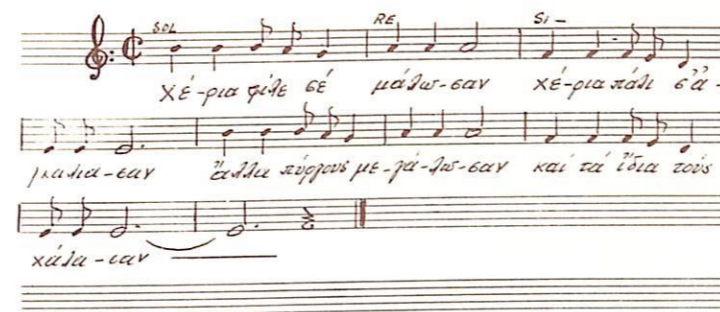 SOL RE Si-
Χέ-ρια φίλε σέ μάτω-σαν χέ-ρια πάλι σ'ἀ-
γκαλια-σαν ἄλλα πύργους με-γά-λω-σαν καί τά ἴδια τούς
χάλα-σαν